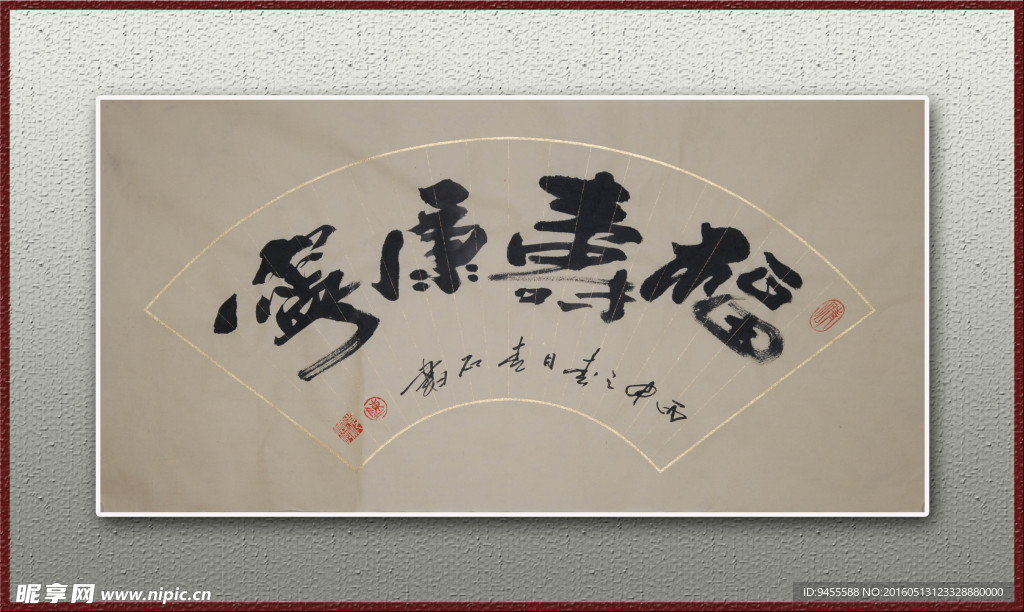 福壽康寧
丙申之春日春石
昵享网 www.nipic.cn
ID:9455588 NO:20160513123328880000